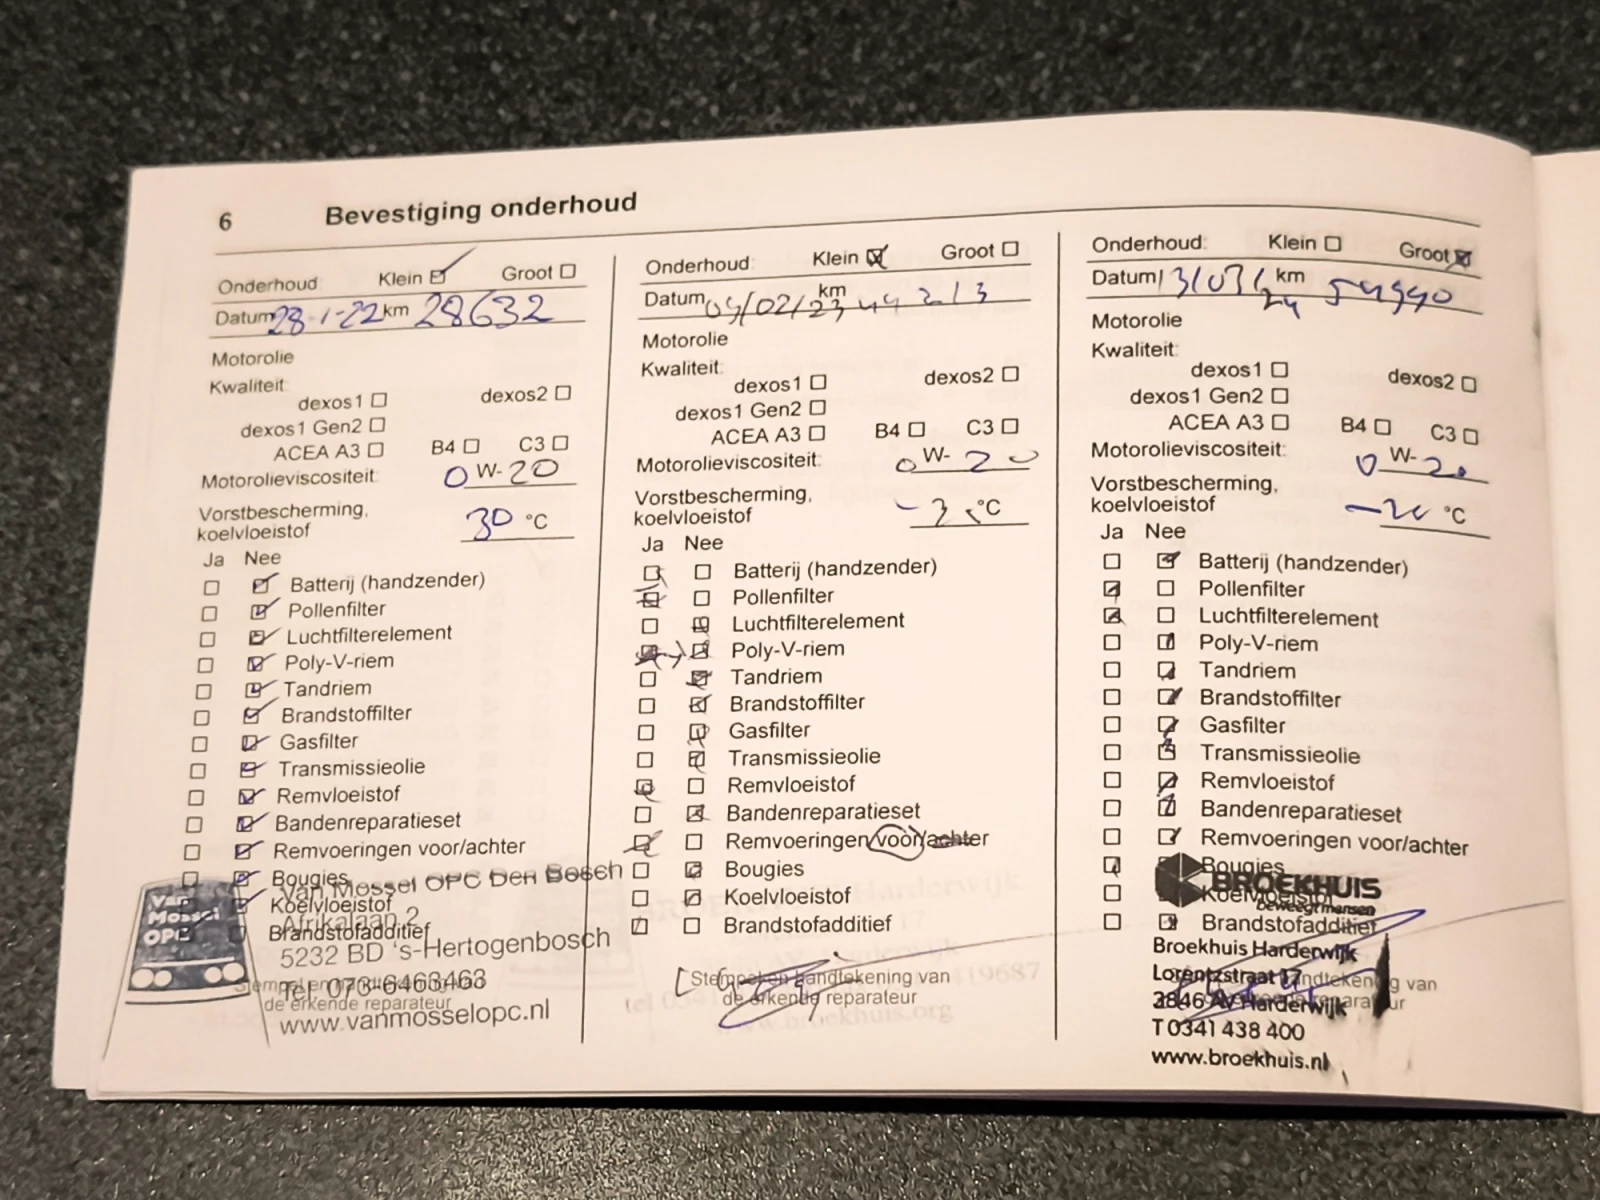 6 Bevestiging onderhoud
Onderhoud: Klein Groot
Datum 28-1-22 km 28632
Motorolie
Kwaliteit:
dexos1 dexos2
dexos1 Gen2
ACEA A3 B4 C3
Motorolieviscositeit: 0 W- 20
Vorstbescherming,
koelvloeistof 30 °C
Ja Nee
Batterij (handzender)
Pollenfilter
Luchtfilterelement
Poly-V-riem
Tandriem
Brandstoffilter
Gasfilter
Transmissieolie
Remvloeistof
Bandenreparatieset
Remvoeringen voor/achter
Bougies
Koelvloeistof
Brandstofadditief
Stempel en
de erkende reparateur
Van Mossel OPC
Van Mossel OPC Den Bosch
Afrikalaan 2
5232 BD 's-Hertogenbosch
Tel. 073-6463463
www.vanmosselopc.nl
Onderhoud: Klein Groot
Datum 09/02/23 km 44 213
Motorolie
Kwaliteit:
dexos1 dexos2
dexos1 Gen2
ACEA A3 B4 C3
Motorolieviscositeit: 0 W- 20
Vorstbescherming,
koelvloeistof °C
Ja Nee
Batterij (handzender)
Pollenfilter
Luchtfilterelement
Poly-V-riem
Tandriem
Brandstoffilter
Gasfilter
Transmissieolie
Remvloeistof
Bandenreparatieset
Remvoeringen voor/achter
Bougies
Koelvloeistof
Brandstofadditief
Stempel en handtekening van
de erkende reparateur
Onderhoud: Klein Groot
Datum 13/03/24 km
Motorolie
Kwaliteit:
dexos1 dexos2
dexos1 Gen2
ACEA A3 B4 C3
Motorolieviscositeit: 0 W- 20
Vorstbescherming,
koelvloeistof °C
Ja Nee
Batterij (handzender)
Pollenfilter
Luchtfilterelement
Poly-V-riem
Tandriem
Brandstoffilter
Gasfilter
Transmissieolie
Remvloeistof
Bandenreparatieset
Remvoeringen voor/achter
Bougies
Koelvloeistof
Brandstofadditief
BROEKHUIS
beweegt mensen
Broekhuis Harderwijk
Lorentzstraat 17
3846 AV Harderwijk
T 0341 438 400
www.broekhuis.nl